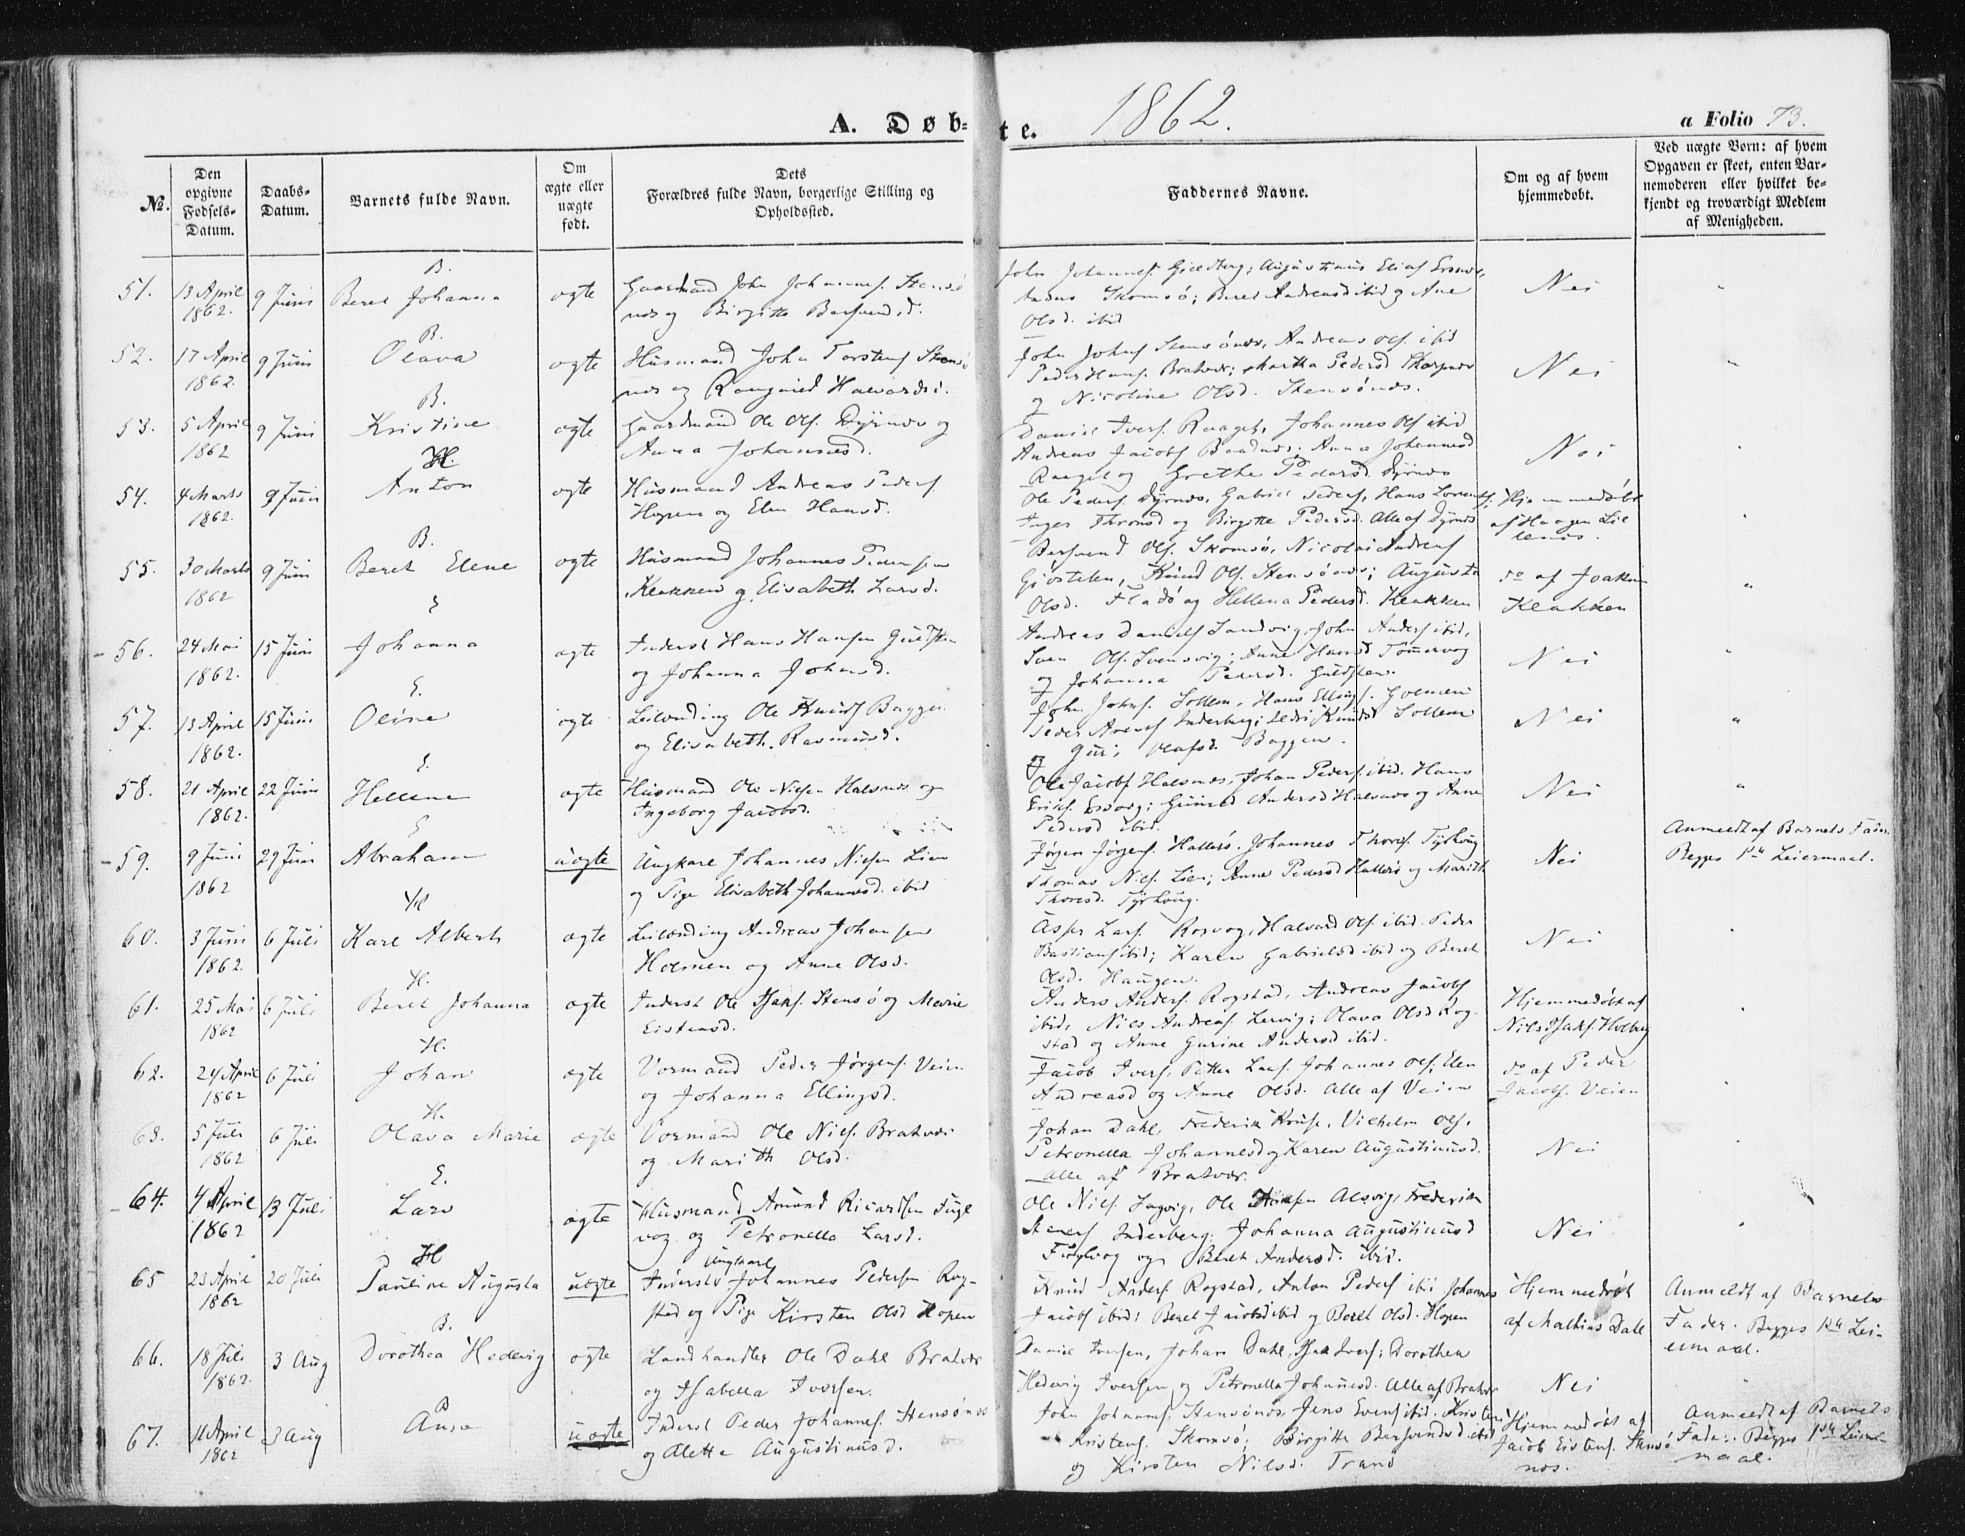 A. Døb-
te.
1862.
a Folio 73.
No.
Den opgivne Fødsels-Datum.
Daabs-Datum.
Barnets fulde Navn.
Om ægte eller uægte født.
Dets Forældres fulde Navn, borgerlige Stilling og Opholdssted.
Faddernes Navne.
Om og af hvem hjemmedøbt.
Ved uægte Børn: af hvem Opgaven er skeet, enten Barnemoderen eller hvilket bekjendt og troværdigt Medlem af Menigheden.
B.
51. 13 April 1862. 9 Juni Beret Johanna ægte
Gaardmand John Johannes. Stensø
nes og Birgitte Bersvend.d.
Olsd. ibid
Nei
B.
52. 17 April 1862. 9 Juni Olava ægte
Husmand John Torstens. Stensø
nes og Rangnild Halvardsd.
John Johns. Stensønes, Andreas Ols. ibid
Peder Hans. Bratvær; Martha Pedersd
og Nicoline Olsd. Stensønes.
Nei
B.
53. 5 April 1862 9 Juni Kristine ægte
Gaardmand Ole Ols. Dyrnes og
Anna Johannesd.
Daniel Ivers. Raaget, Johannes Ols ibid
Andreas Jacobs. Anna Johannesd
Raaget og Grethe Pedersd. Dyrnes
Nei
H.
54. 4 Marts 1862. 9 Juni Anton ægte
Husmand Andreas Peders.
Hopen og Elen Hansd.
Ole Peders. Dyrnes, Gabriel Peders, Hans Lorents.
Inger Thronsd og Birgitte Pedersd. Alle af Dyrnes
Hjemmedøbt
af Haagen
B.
55. 30 Marts 1862 9 Juni Beret Elene ægte
Husmand Johannes Pedersen
Klakken og Elisabeth Larsd.
Bersvend Ols. Skomsø, Nicolai Andreas
Gjostelen, Knud Ols. Stensønes; Augusta
Olsd. Fladø og Hellena Pedersd. Klakken
do af Joakim
Klakken
E
56. 24 Mai 1862. 15 Juni Johanna ægte
Inderst Hans Hansen
og Johanna Johansd.
Andreas Daniels Sandvig, John Anders ibid,
Sven Ols. Svensvig; Anne Hansd Tømmervog
og Johanna Pedersd.
Nei
E.
57. 13 April 1862. 15 Juni Oline ægte
Leilending Ole Knuds Baggen
og Elisabeth Rasmusd.
John Johns. Sollem, Hans Ellings. Holmen
Peder Inderberg; Knudsd Sollem
og Guri Olafsd. Baggen.
Nei
E.
58. 21 April 1862. 22 Juni Hellene ægte
Husmand Ole Nielsen Halsnes og
Ingeborg Jacobsd.
Ole Jacobs Halsnes, Johan Peders. ibid. Hans
Andersd Halsnes og Anne
Pedersd ibid.
Nei
E
59. 9 Juni 1862 29 Juni Abraham uægte
Ungkarl Johannes Nielsen Lien
og Pige Elisabeth Johannesd. ibid
Jørgen Jørgens. Hallerø. Johannes Thores.
Thomas Niels. Lien; Anne Pedersd Hallerø og Marith
Thoresd.
Nei
Anmeldt af Barnets Fader.
Begges 1ste Leiermaal.
H
60. 3 Juni 1862. 6 Juli Karl Albert ægte
Leilending Andreas Johansen
Holmen og Anne Olsd.
Asper Lars. Rosvog, Halvard Ols. ibid. Peder
Bastians ibid; Karen Gabrielsd ibid og Beret
Olsd. Haugen.
Nei
H.
61. 25 Mai 1862 6 Juli Beret Johanna ægte
Inderst Ole Isaks. Stensø og Marie
Eistensd.
Anders Anders. Rogstad, Andreas Jacobs
ibid, Niels Andreas. Lervig; Olava Olsd Rog-
stad og Anne Gurine Andersd ibid.
Hjemmedøbt af
Niels Isaks. Holberg
H.
62. 24 April 1862 6 Juli Johan ægte
Vormand Peder Jørgens. Veien
og Johanna Ellingsd.
Jacob Ivers, Petter Lars. Johannes Ols; Elen
Andreasd og Anne Olsd. Alle af Veien
do af Peder
Jacobs. Veien
H.
63. 5 Juli 1862 6 Juli Olava Marie ægte
Vormand Ole Niels. Bratvær
og Marith Olsd.
Johan Dahl, Frederik Kruse, Vilhelm Ols,
Petronella Johannesd og Karen Augustinusd.
alle af Bratvær.
Nei
E.
64. 4 April 1862 13 Juli Lars ægte
Husmand Amund Ricardsen Fugl
vog og Petronella Larsd.
Ole Niels. Ole Frederik
Inderberg; Johanna Augustinusd
Fuglvog og Beret Andersd. ibid.
Nei
H
65 23 April 1862 20 Juli Pauline Augusta uægte
Ungkarl
Inderst Johannes Pedersen Rog-
stad og Pige Kirsten Olsd Hopen
Knud Anders. Rogstad, Anton Peders ibid Johannes
Jacobs ibid; Beret Jacobsd ibid og Beret Olsd. Hopen
Hjemmedøbt
af Mathias Dahl
Anmeldt af Barnets
Fader. Begges 1ste Lei-
ermaal.
B.
66. 18 Juli 1862. 3 Aug Dorothea Hedevig ægte
Landhandler Ole Dahl Bratvær
og Isabella Iversen.
Daniel Iversen, Johan Dahl, Isak Ivers; Dorothea
Hedevig Iversen og Petronella Johannesd. Alle af Bratvær
Nei
B
67. 11 April 1862 3 Aug Anne uægte
Inderst Peder Johannes. Stensønes
og Alette Augustinusd.
John Johannes. Stensønes, Jens Evens ibid. Kristen
Kristens. Skomsø; Birgitte Bersvendsd ibid
og Kirsten Nilsd. Trand
Hjemmedøbt af
Jacob Eistens. Stensø
nes.
Anmeldt af Barnets
Fader. Begges 1ste Leier-
maal.